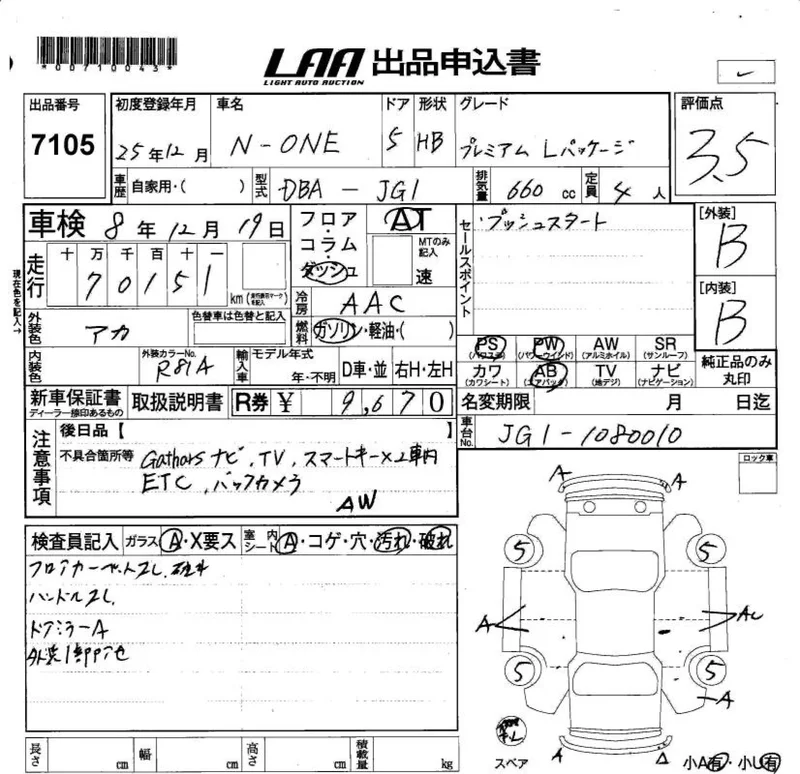 *00710043*
LAA 出品申込書
LIGHT AUTO AUCTION
出品番号 初度登録年月 車名 ドア 形状 グレード 評価点
7105 25年12月 N-ONE 5 HB プレミアム Lパッケージ 3.5
車歴 自家用・( ) 型式 DBA-JG1 排気量 660cc 定員 4人
車検 8年12月19日 フロア・コラム・ダッシュ AT セールスポイント プッシュスタート [外装] B
MTのみ記入 速
現在色を記入→
走行 十万千百十一
70151 km
(走行表示マークを記入) 冷房 AAC [内装] B
外装色 アカ 色替車は色替と記入 燃料 ガソリン・軽油・( )
PS (パワステ) PW (パワーウインド) AW (アルミホイル) SR (サンルーフ) 純正品のみ丸印
内装色 外装カラーNo. R81A 輸入車 モデル年式 年・不明 D車・並 右H・左H
カワ (カワシート) AB (エアバック) TV (地デジ) ナビ (ナビゲーション)
新車保証書 ディーラー捺印あるもの 取扱説明書 R券 ¥ 9,670 名変期限 月 日迄
注意事項 後日品【 】 車台No. JG1-1080010
不具合箇所等 Gathersナビ、TV、スマートキー×2車内 ロック車
ETC、バックカメラ
AW
検査員記入 ガラス A・X要ス 室内シート A・コゲ・穴・汚れ・破れ
フロアカーペットスレ、
ハンドルスレ
ドアミラーA
外装1部
A A
5 5
A A
5 5
A
スペア A
小A有・小U有
長さ cm 幅 cm 高さ cm 積載量 kg